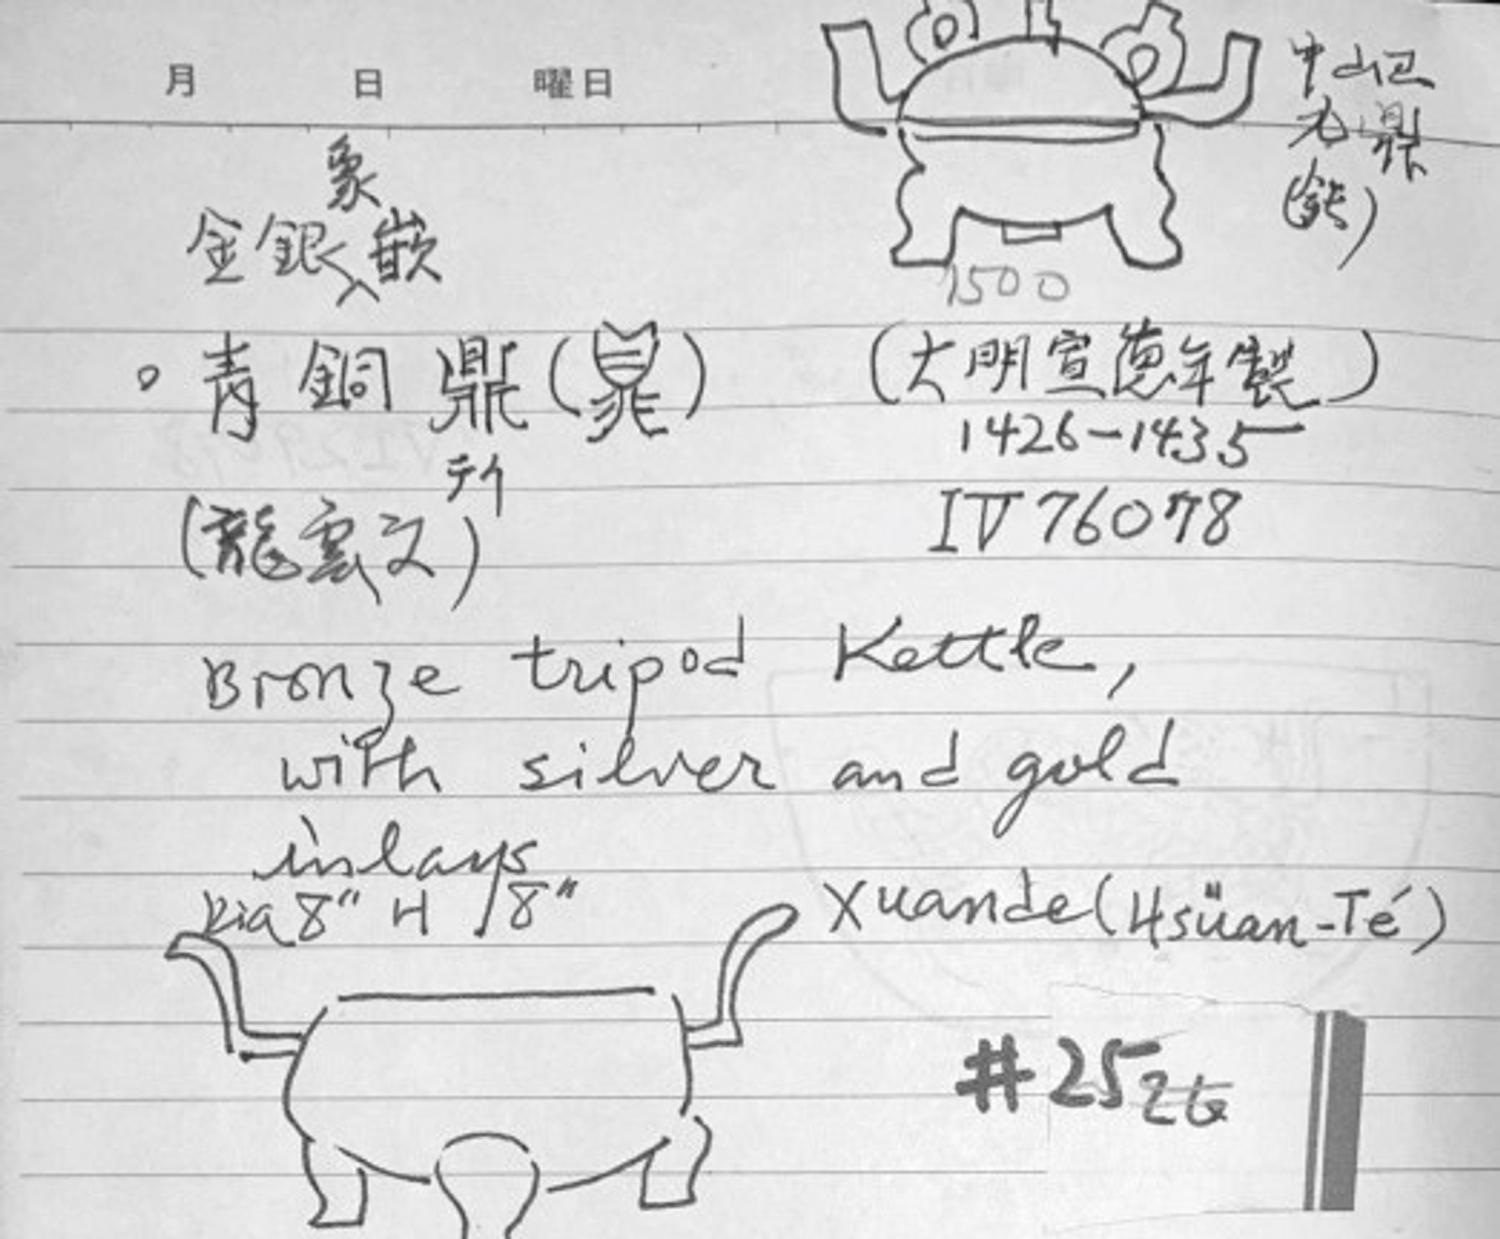 月 日 曜日
象
金銀嵌
青銅鼎
(大明宣徳年製)
1426-1435
テイ
(龍雲文)
IV 76078
1500
Bronze tripod Kettle,
with silver and gold
inlays
Dia 8" H 18"
Xuande (Hsüan-Té)
#25